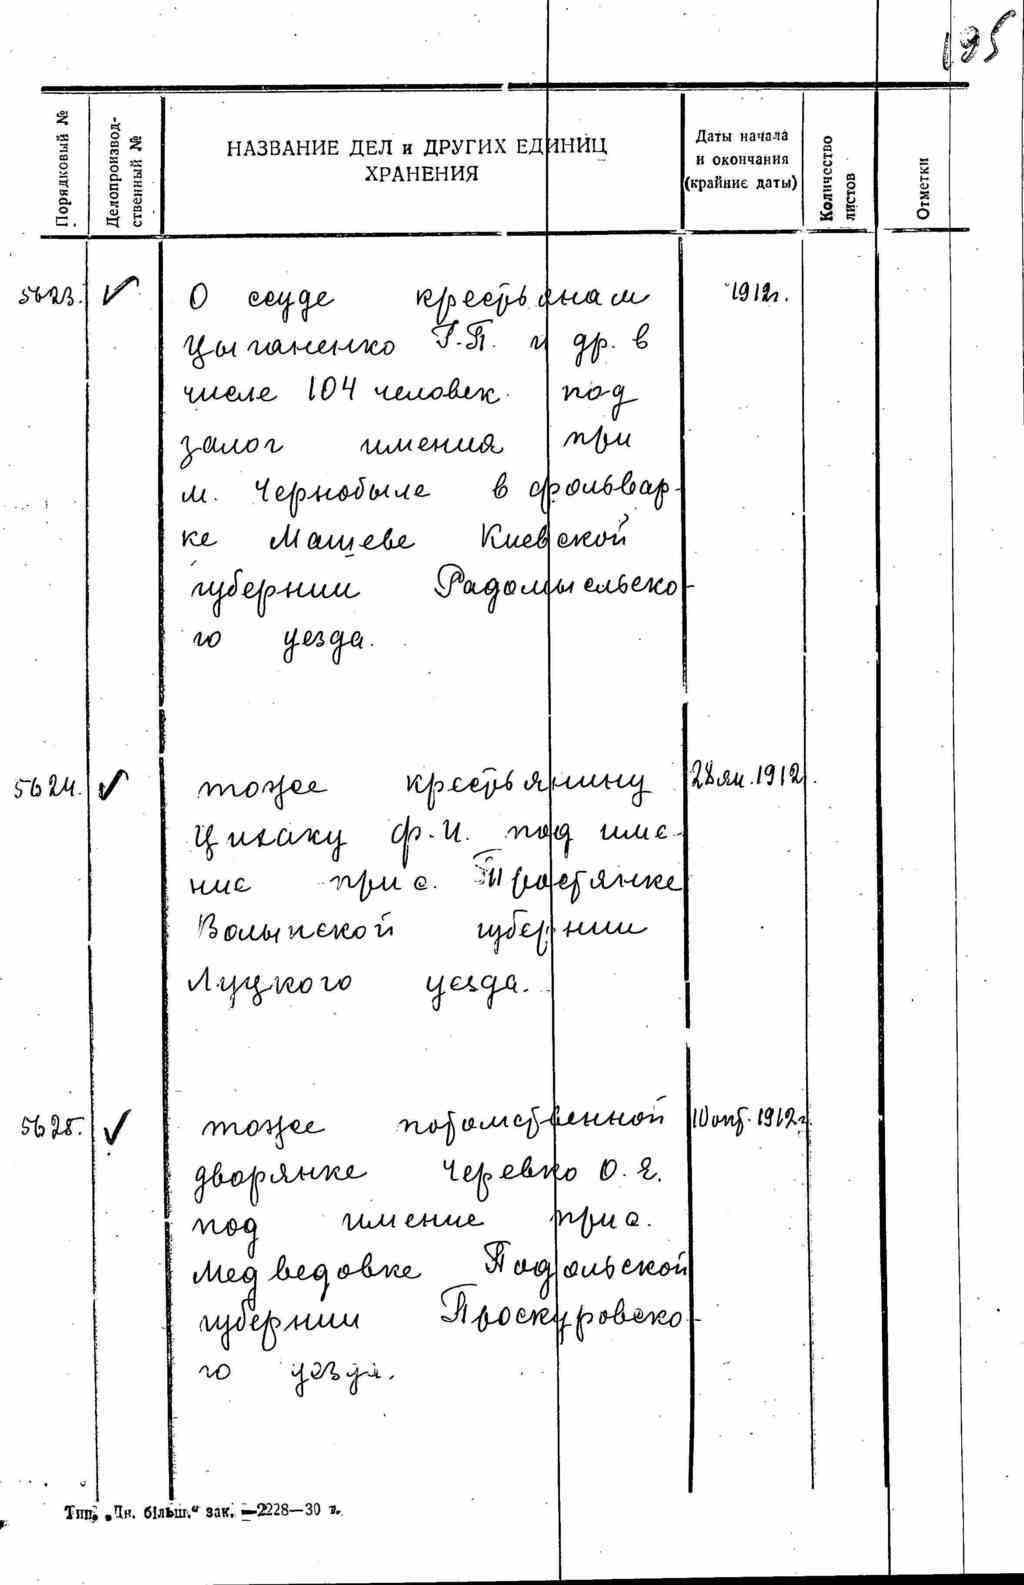 195
Порядковый №
Делопроизвод-
ственный №
НАЗВАНИЕ ДЕЛ и ДРУГИХ ЕДИНИЦ
ХРАНЕНИЯ
Даты начала
и окончания
(крайние даты)
Количество
листов
Отметки
5623. ✓ О ссуде крестьянам 1912г.
Цыганенко Г.П. и др. в
числе 104 человек под
залог имения при
м. Чернобыле в фольвар-
ке Машеве Киевской
губернии Радомысльско-
го уезда.
5624. ✓ тоже крестьянину 28 ян. 1912
ф.И. под име-
ние при с. Тростянке
Волынской губернии
Луцкого уезда.
5625. ✓ тоже потомственной 10 окт. 1912г.
дворянке Черевко О.Я.
под имение при с.
Медведовке Подольской
губернии Проскуровско-
го уезда.
Тип. „Лн. більш." зак. —2228—30 т.